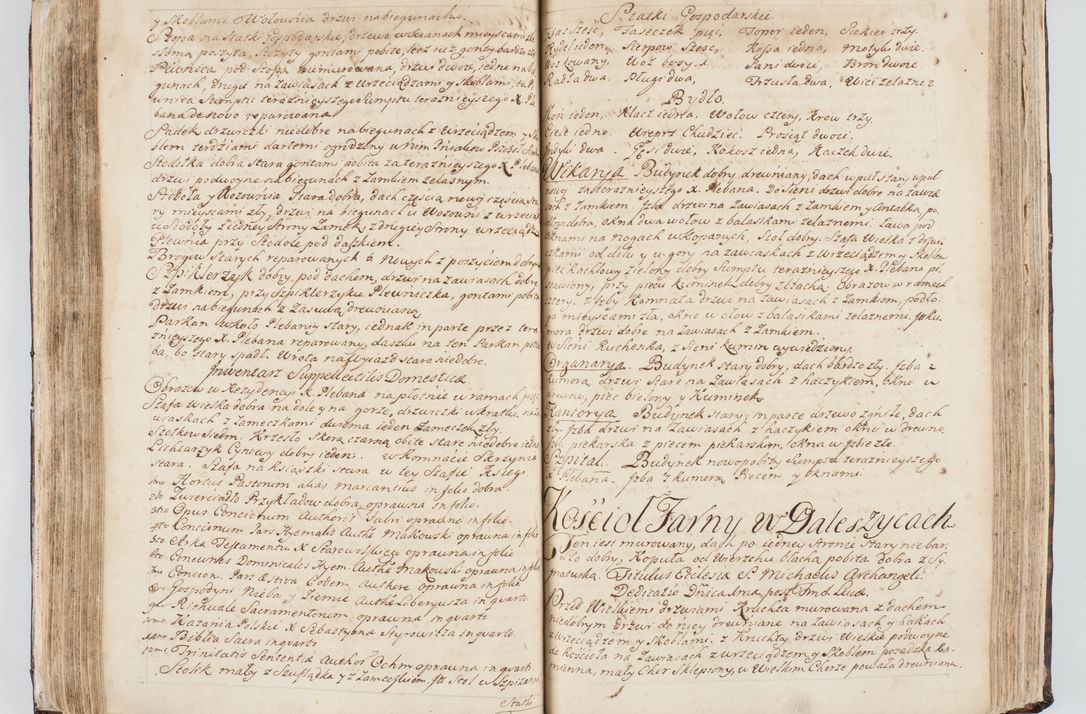 y Skoblami. Wozownia drzwi na biegunach.
Szopa na Statki Gospodarskie, drzewo w scianach mieyscami
słomą poszyta, Szczyty gontami pobite, lecz iuż gonty bardzo złe
Piwnica pod Szopą niemurowana, drzwi dwoie, iedne na bie-
gunach, drugie na zawiasach z wrzeciądzami y Skoblami,
Sumptu teraznieyszego X. Ple-
bana de novo reparowana
Sadek drzwiczki niedobre na biegunach z wrzeciądzem y Sko-
blem zerdziami dartemi ogrodzony w nim
Stodołka dobra Stara gontami pobita za teraznieyszego X. Plebana
drzwi podwoyne na biegunach z Zamkiem zelaznym.
Stodoła y Wozownia Stara dobra, dach częścią nowy częścią sta-
ry mieyscami zły, drzwi na biegunach u Wozowni z wrzeciąd.
u Stodoły z iedney Strony Zamek z drugiey Strony wrzeciądz
Plewnia przy Stodole pod daszkiem.
Brogow Starych reparowanych 2. Nowych z poszyciem dobrym
Szpiklerzyk dobry, pod dachem, drzwi na zawiasach dobre
z Zamkiem, przy Szpiklerzyku Plewniczka, gontami pobita
drzwi na biegunach z Zasuwą drewnianą
Parkan około Plebanii stary, iednak in parte przez tera-
znieyszego X. Plebana reparowany, daszku na ten Parkan potrze-
ba, bo Stary spadł. Wrota na wiazd Stare niedobre.
Inventarz Suppellectilis Domesticæ
Obrazow w Rezydencyi X. Plebana na płotnie w ramach pięć
Szafa wielka dobra na dole y na gorze, drzwiczki w kratkę, na za-
wiaskach z Zameczkami dwoma ieden Zameczek zły.
Stołkow Siedm. Krzesło Skorą czarną obite stare niedobre iedne
Lichtarzyk Cynowy dobry ieden. w Komnacie Skrzynia
Stara. Szafa na Ksiąszki Stara w tey Szafie Xsięgi
1mo Hortus Pastorum alias Marcantius in folio dobra.
2do Zwierciadło Przykładow dobra oprawna in folio.
3tio Opus Concionum Authoris Fabri oprawne in folio.
4to Concionum Pars Hyemalis Authe Makowski oprawna in folio
5to Arka Testamentu X Starowolskiego oprawna in folio
6to Conciones Dominicales Hyem. Authe Makowski oprawna in folio
7mo Concion. Pars Æstiva Eodem Authore oprawna in folio
8vo Gospodyni Nieba y Ziemie Authe Lobenyusa in quarto
9no Rithuale Sacramentorum oprawna in quarto
10mo Kazania Polskie X Sebastyana Styrowicza in quarto.
11mo Biblia Sacra in quarto
12mo Trinitatis Sententia Author Ochm oprawna in quarto.
Stolik mały z Szufladką y z Zameczkiem. Stoł w Szpizarni
Statki
Statki Gospodarskie.
Fas Sześć, Faseczek pięć, Toper ieden, Siekier trzy.
Rydel ieden, Sierpow Sześć, Kossa iedna, Motyki dwie.
Woz Kowany, Woz bosy 1. Sani dwoie, Bron dwoie
Radła dwa. Pługi dwa, Trzusła dwa, Wici zelaznez
Bydło.
Koń ieden, Klacz iedna, Wołow cztery, Krow trzy.
Ciele iedno. Wieprz Chudziec. Prosiąt dwoie.
Indyki dwa Gęsi dwie, Kokosz iedna, Kaczek dwie.
Wikarya Budynek dobry drewniany, dach w puł stary w puł
nowy za teraznieyszego X. Plebana. Do Sieni drzwi dobre na zawia-
sach z Zamkiem. Izba drzwi na Zawiasach z Zamkiem y Antabką, po-
dłoga dobra, okna dwa w ołow z balasikami zelaznemi. Ława pod
oknami na nogach w kopanych, Stoł dobry. Szafa Wielka z drzwi-
czkami od dołu y w gorę na zawiaskach z Wrzeciądzem y Skoblem
piec kachlowy zielony dobry Sumptu teraznieyszego X. Plebana po-
stawiony, przy piecu Kuminek dobry z blachą. Obrazow w ramach
cztery. z Izby Komnata drzwi na Zawiasach z Zamkiem, podło-
ga mieyscami zła, okno w ołow z balasikami zelaznemi, z Ku-
mora drzwi dobre na Zawiasach z Zamkiem.
w Sieni Kuchenka, z Sieni Kumin wywiedziony.
Organarya. Budynek stary dobry, dach bardzo zły. Izba z
Kumorą drzwi Stare na Zawiasach z haczykiem, okno w
drewno, piec bielony y Kuminek.
Kantorya Budynek Stary, in parte drzewo zgniłe, dach
zły. Izba drzwi na Zawiasach z haczykiem okno w drewno,
piekarska z piecem piekarskim, okna w Izbie złe.
Szpital. Budynek nowo pobity Sumptem teraznieyszego
X. Plebana. Izba z Kumorą Piecem y oknami
Kościoł Farny w Daleszycach
Ten iest murowany, dach po iedney stronie Stary niebar-
dzo dobry, Kopuła od Wierzchu blachą pobita dobra z Sy-
gnaturką. Titulus Ecclesiæ S. Michaelis Archangeli.
Dedicatio Dnica Ima post Fm S. Lucæ.
Przed Wielkiemi drzwiami Kruchta murowana z dachem
niedobrym drzwi do niey drewniane na Zawiasach y hakach
z wrzeciądzem y Skoblami: z Kruchty drzwi Wielkie podwoyne
do kościoła na Zawiasach z wrzeciądzem y Skoblem posadzka ka-
mienna, mały Chor Sklepiony, w Wielkim Chorze powała drewniana.